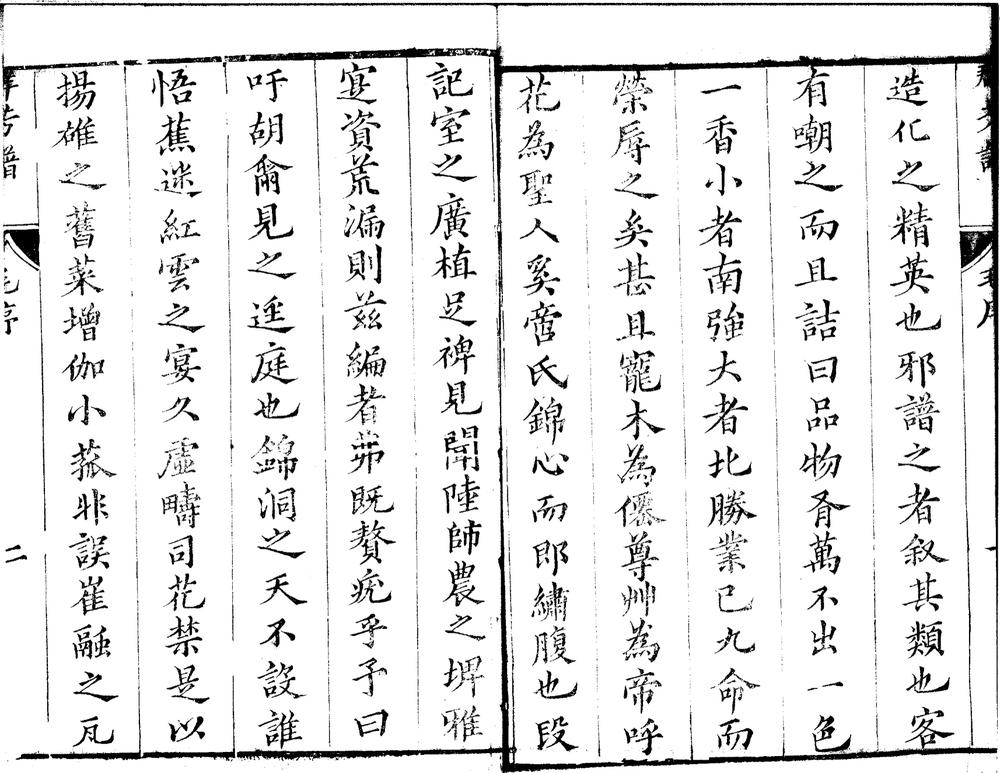 造化之精英也邪譜之者叙其類也客
有嘲之而且詰曰品物胥萬不出一色
一香小者南強大者北勝業已九命而
榮辱之矣甚且寵木為僊尊艸為帝呼
花為聖人奚啻氏錦心而郎繡腹也段
記室之廣植足裨見聞陸師農之埤雅
寔資荒漏則茲編者茀既贅疣乎予曰
吁胡爾見之逕庭也錦洞之天不設誰
悟蕉迷紅雲之宴久虛疇司花禁是以
揚雄之蕾菜增伽小菰非誤崔融之瓦
羣芳譜
二